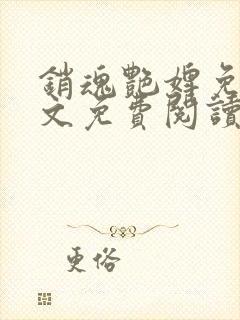 銷魂艷婢免
文免費閱讀
更俗